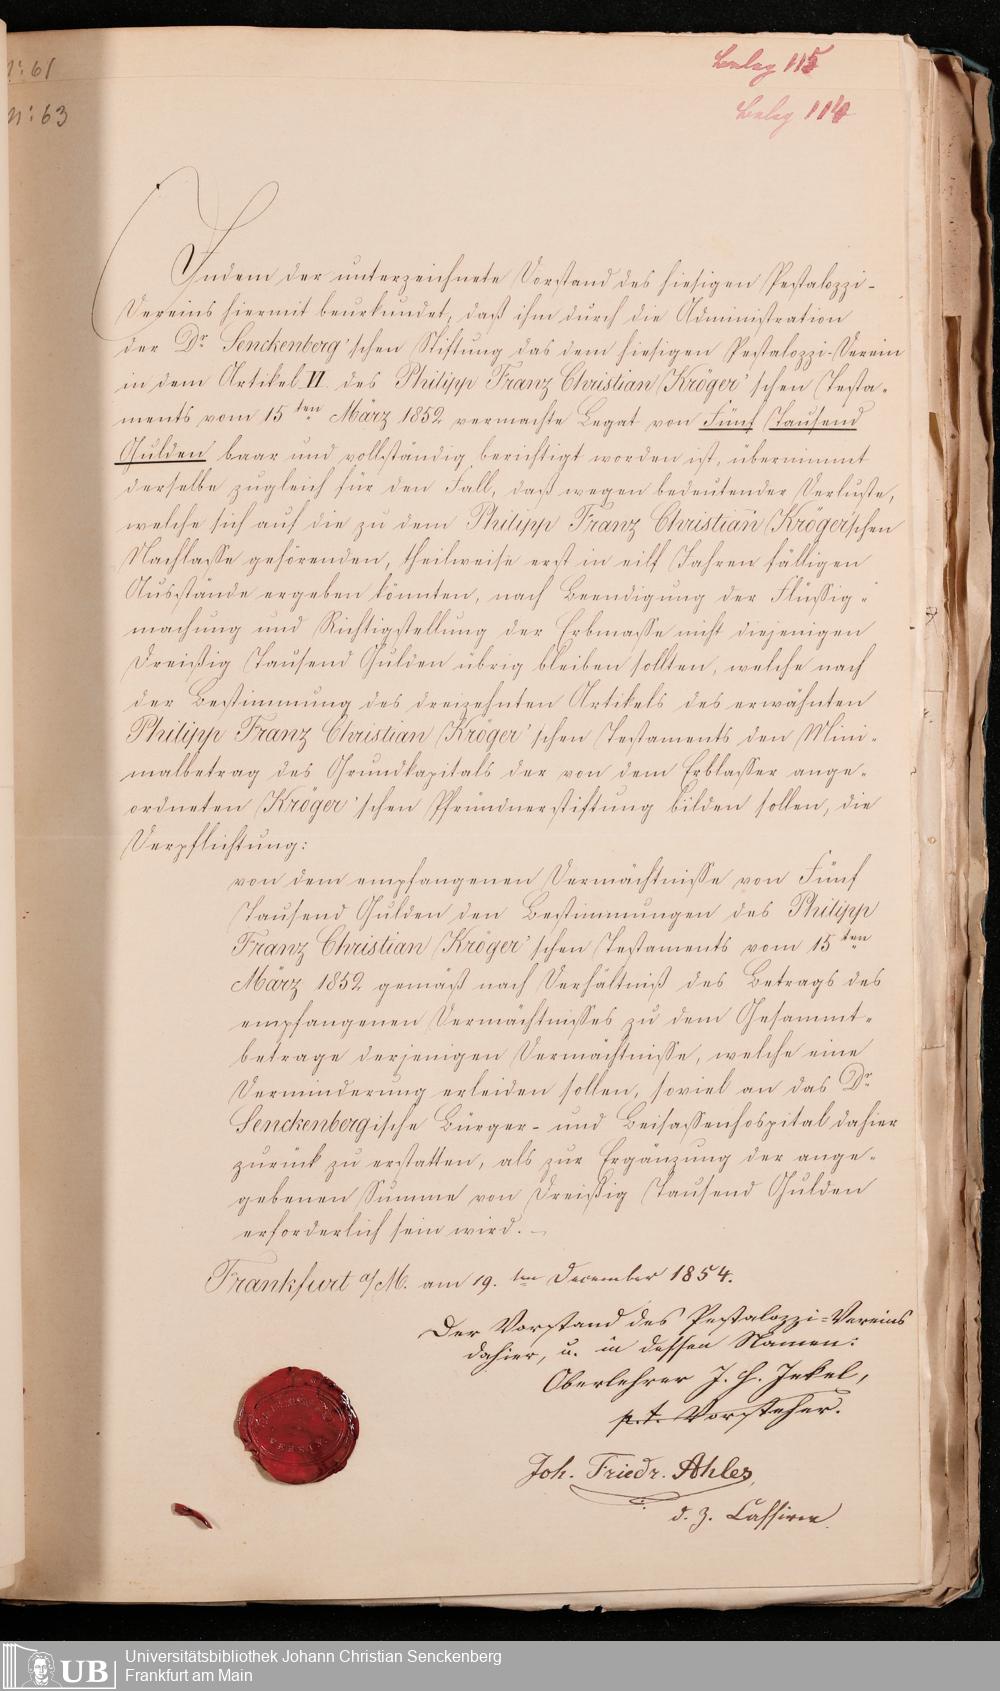 N: 61
N: 63
Beleg 115
Beleg 114
Indem der unterzeichnete Vorstand des hiesigen Pestalozzi-
Vereins hiermit beurkundet, daß ihm durch die Administration
der Dr. Senckenberg'schen Stiftung das dem hiesigen Pestalozzi-Verein
in dem Artikel II. des Philipp Franz Christian Kröger'schen Testa-
ments vom 15ten März 1852 vermachte Legat von Fünf Tausend
Gulden baar und vollständig berichtigt worden ist, übernimmt
derselbe zugleich für den Fall, daß wegen bedeutender Verluste,
welche sich auf die zu dem Philipp Franz Christian Kröger'schen
Nachlasse gehörenden, theilweise erst in eilf Jahren fälligen
Ausstände ergeben könnten, nach Beendigung der Flüssig-
machung und Richtigstellung der Erbmasse nicht diejenigen
Dreißig Tausend Gulden übrig bleiben sollten, welche nach
der Bestimmung des dreizehnten Artikels des erwähnten
Philipp Franz Christian Kröger'schen Testaments den Mini-
malbetrag des Grundkapitals der von dem Erblasser ange-
ordneten Kröger'schen Pfründnerstiftung bilden sollen, die
Verpflichtung:
von dem empfangenen Vermächtnisse von Fünf
Tausend Gulden den Bestimmungen des Philipp
Franz Christian Kröger'schen Testaments vom 15ten
März 1852 gemäß nach Verhältniß des Betrags des
empfangenen Vermächtnisses zu dem Gesammt-
betrage derjenigen Vermächtnisse, welche eine
Verminderung erleiden sollen, soviel an das Dr.
Senckenbergische Bürger- und Beisassenhospital dahier
zurück zu erstatten, als zur Ergänzung der ange-
gebenen Summe von Dreißig Tausend Gulden
erforderlich sein wird. –
Frankfurt a/M. am 19.ten December 1854.
Der Vorstand des Pestalozzi-Vereins
dahier, u. in dessen Namen:
Oberlehrer J. H. Jekel,
p.t. Vorsteher.
Joh. Friedr. Ahles,
d. z. Cassirer.
VEREIN
UB
Universitätsbibliothek Johann Christian Senckenberg
Frankfurt am Main